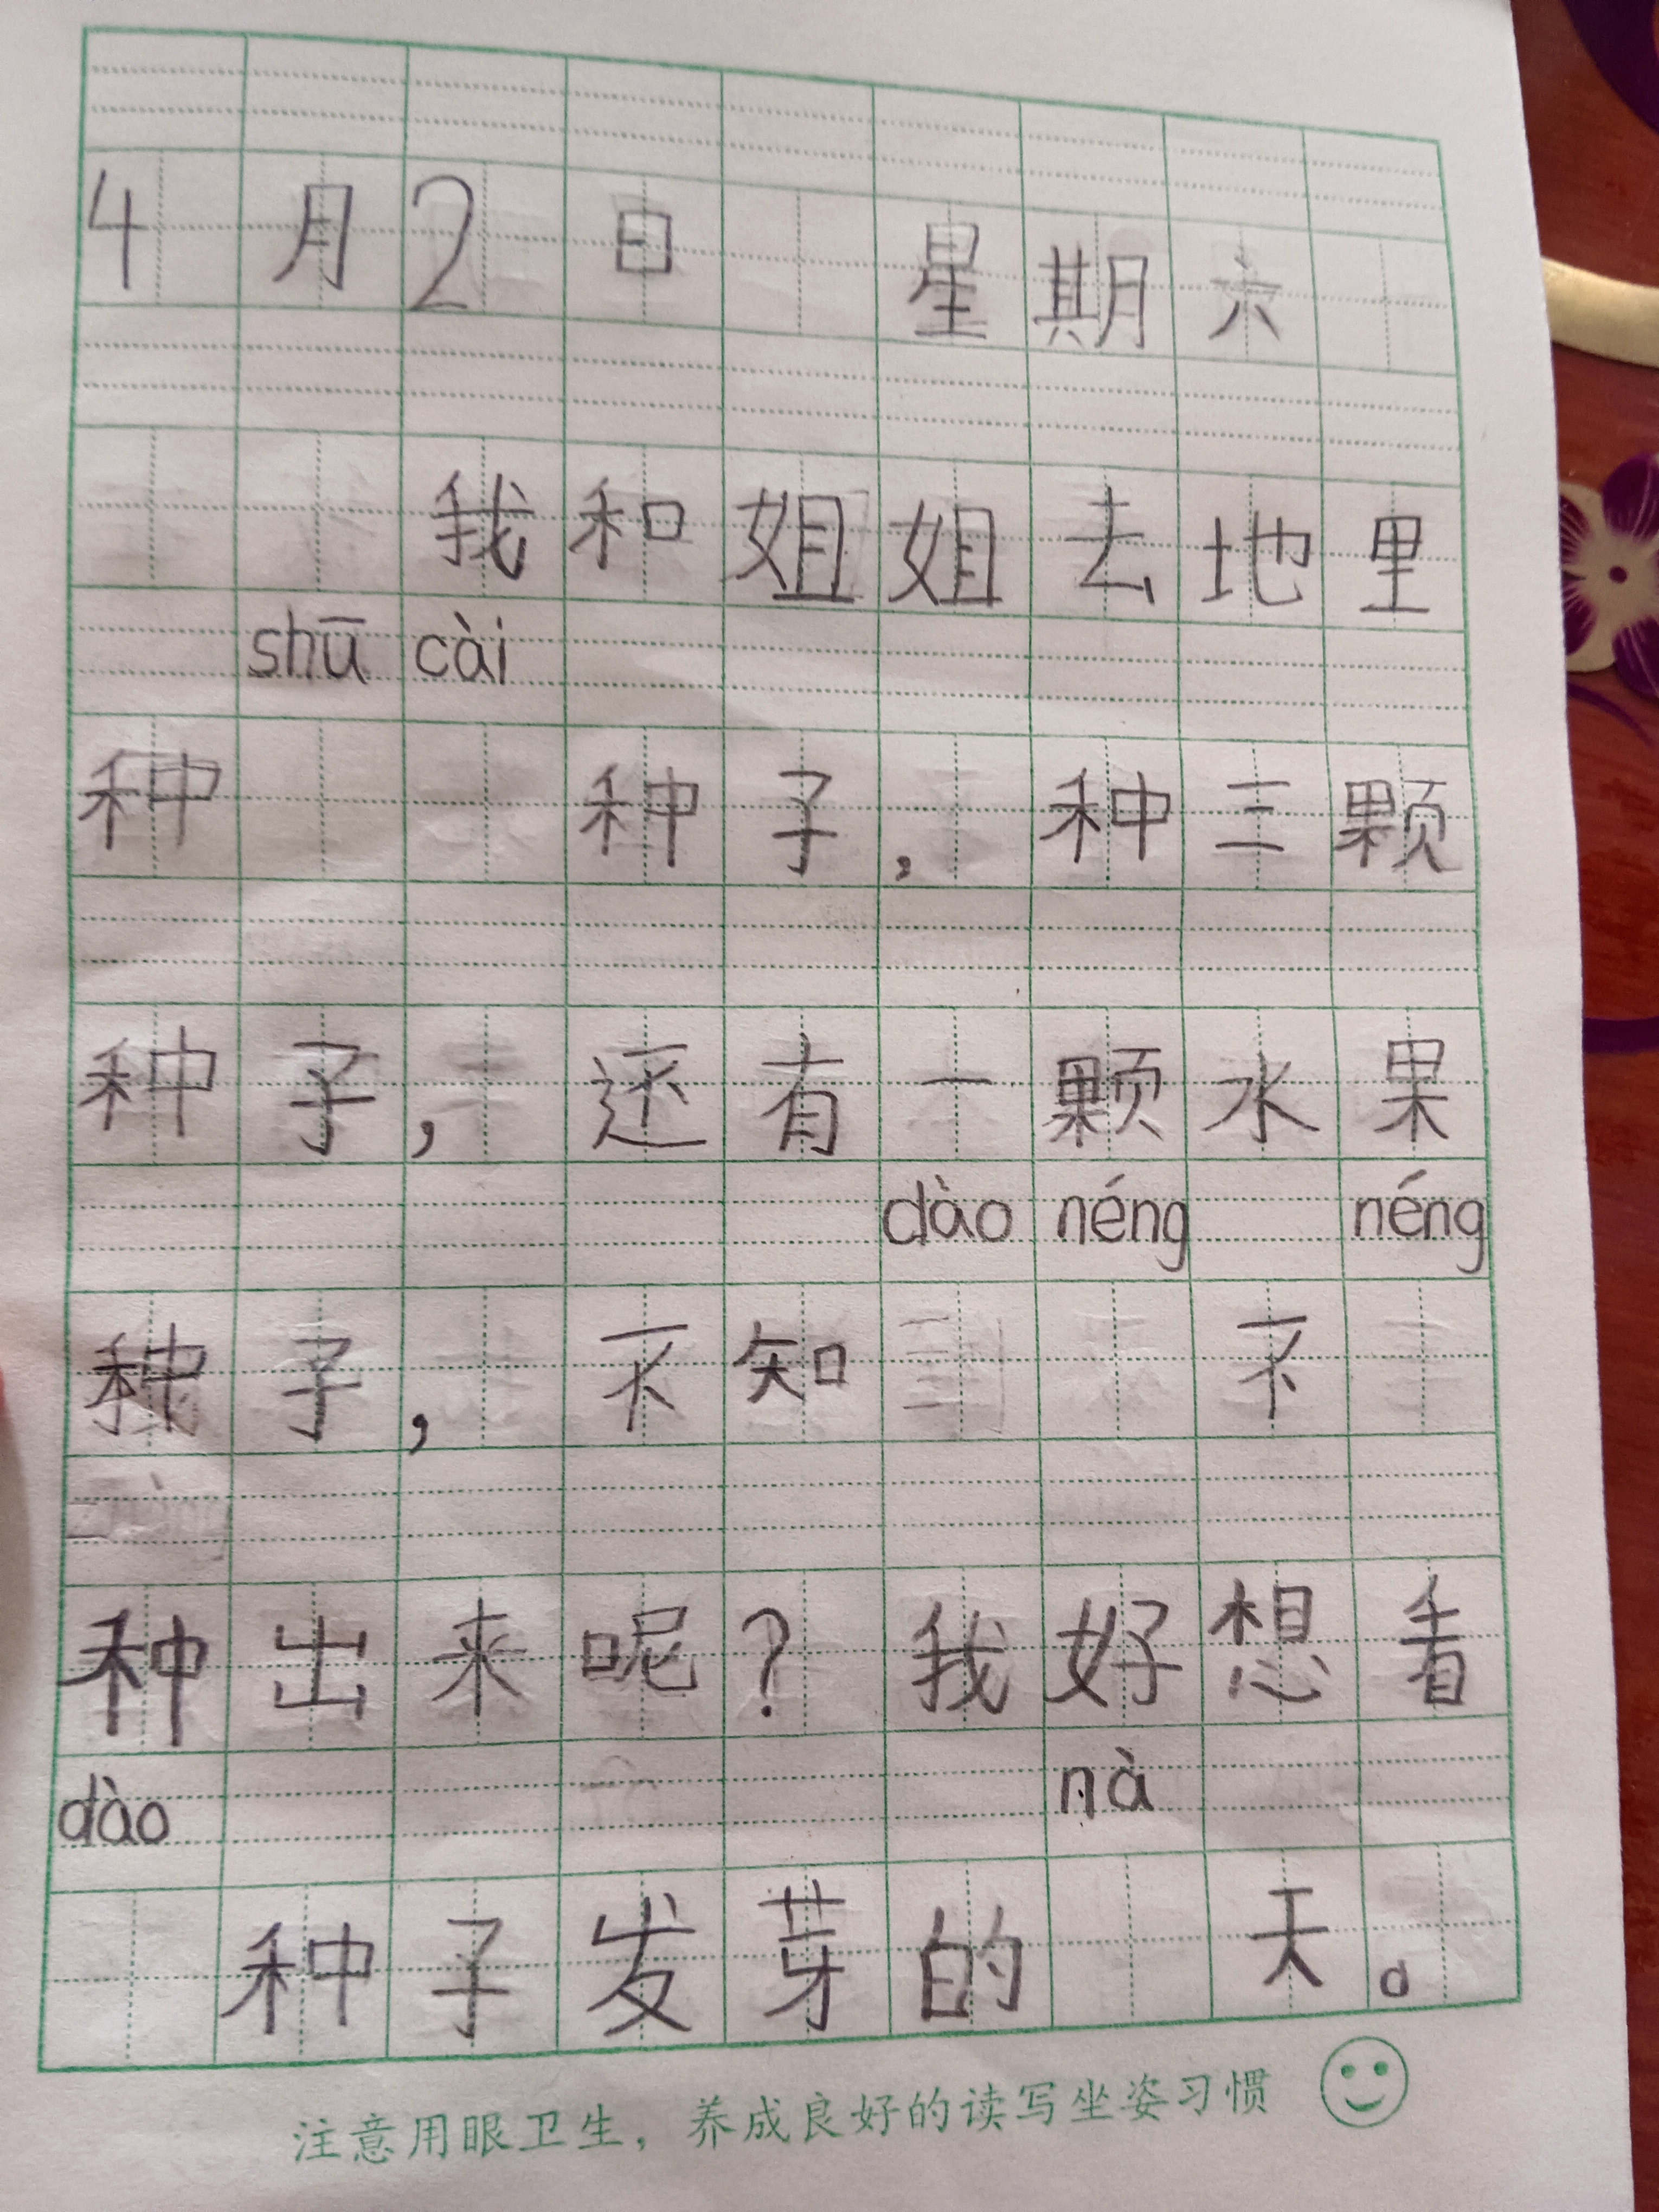 4月2日 星期六
我和姐姐去地里
shū cài
种 种子,种三颗
种子,还有一颗水果
dào néng néng
种子,不知 不
种出来呢?我好想看
dào nà
种子发芽的 天。
注意用眼卫生,养成良好的读写坐姿习惯